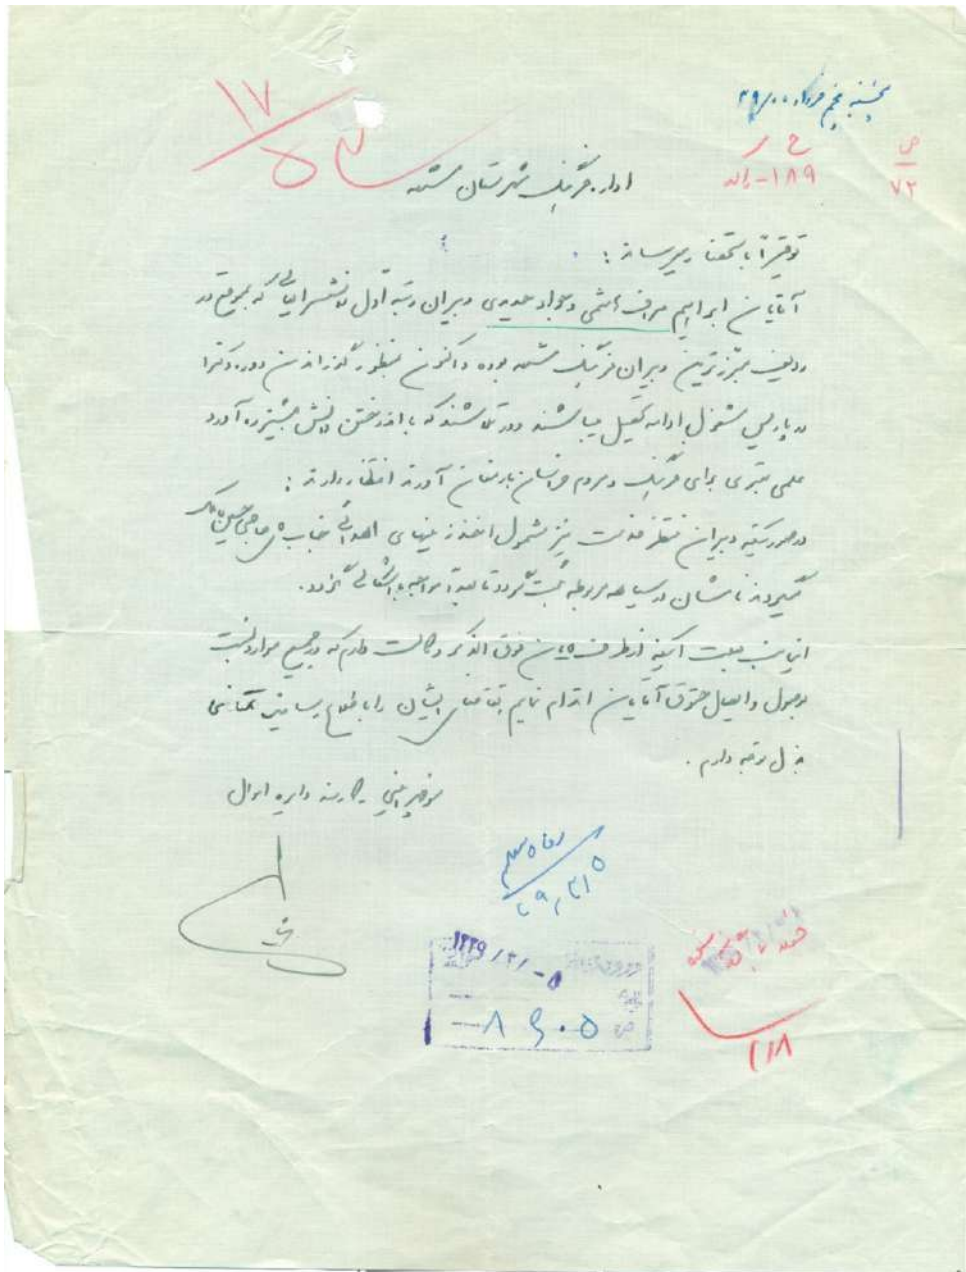 پنجشنبه پنجم خرداد ۲۹
۱۷
۵۳
ص
۷۲
ح
۱۸۹
اداره فرهنگ شهرستان مشهد
توقیراً باستحضار میرساند :
آقایان ابراهیم هاشمی و جواد حدیدی دبیران رتبه اول دانشسرایعالی که بموقع در
ردیف مبرزترین دبیران فرهنگ مشهد بوده و اکنون بمنظور گذراندن دوره دکترا
در پاریس مشغول ادامه تحصیل میباشند و در تلاشند که با اندوختن دانش بیشتر ره آورد
علمی بهتری برای فرهنگ و مردم خراسان بارمغان آورند انتظار دارند :
در صورتیکه دبیران منتظر خدمت نیز مشمول اخذ زمینهای اهدائی جناب آقای حاجی حسین آقا ملک
میگردند نامشان در سیاهه مربوطه ثبت گردد تا بعداً مواجه با اشکالی نگردد.
اینجانب بعلت آنکه از طرف آقایان فوق الذکر وکالت دارم که در جمیع موارد نسبت
بوصول و ایصال حقوق آقایان اقدام نمایم تقاضای ایشان را باطلاع رسانیده تمنای
بذل توجه دارم .
کارمند دایره اموال
رفاه معلم
۲۹/۳/۵
۱۳۲۹/۳/-۵
ورود
۸۶۰۵
۱۱۸